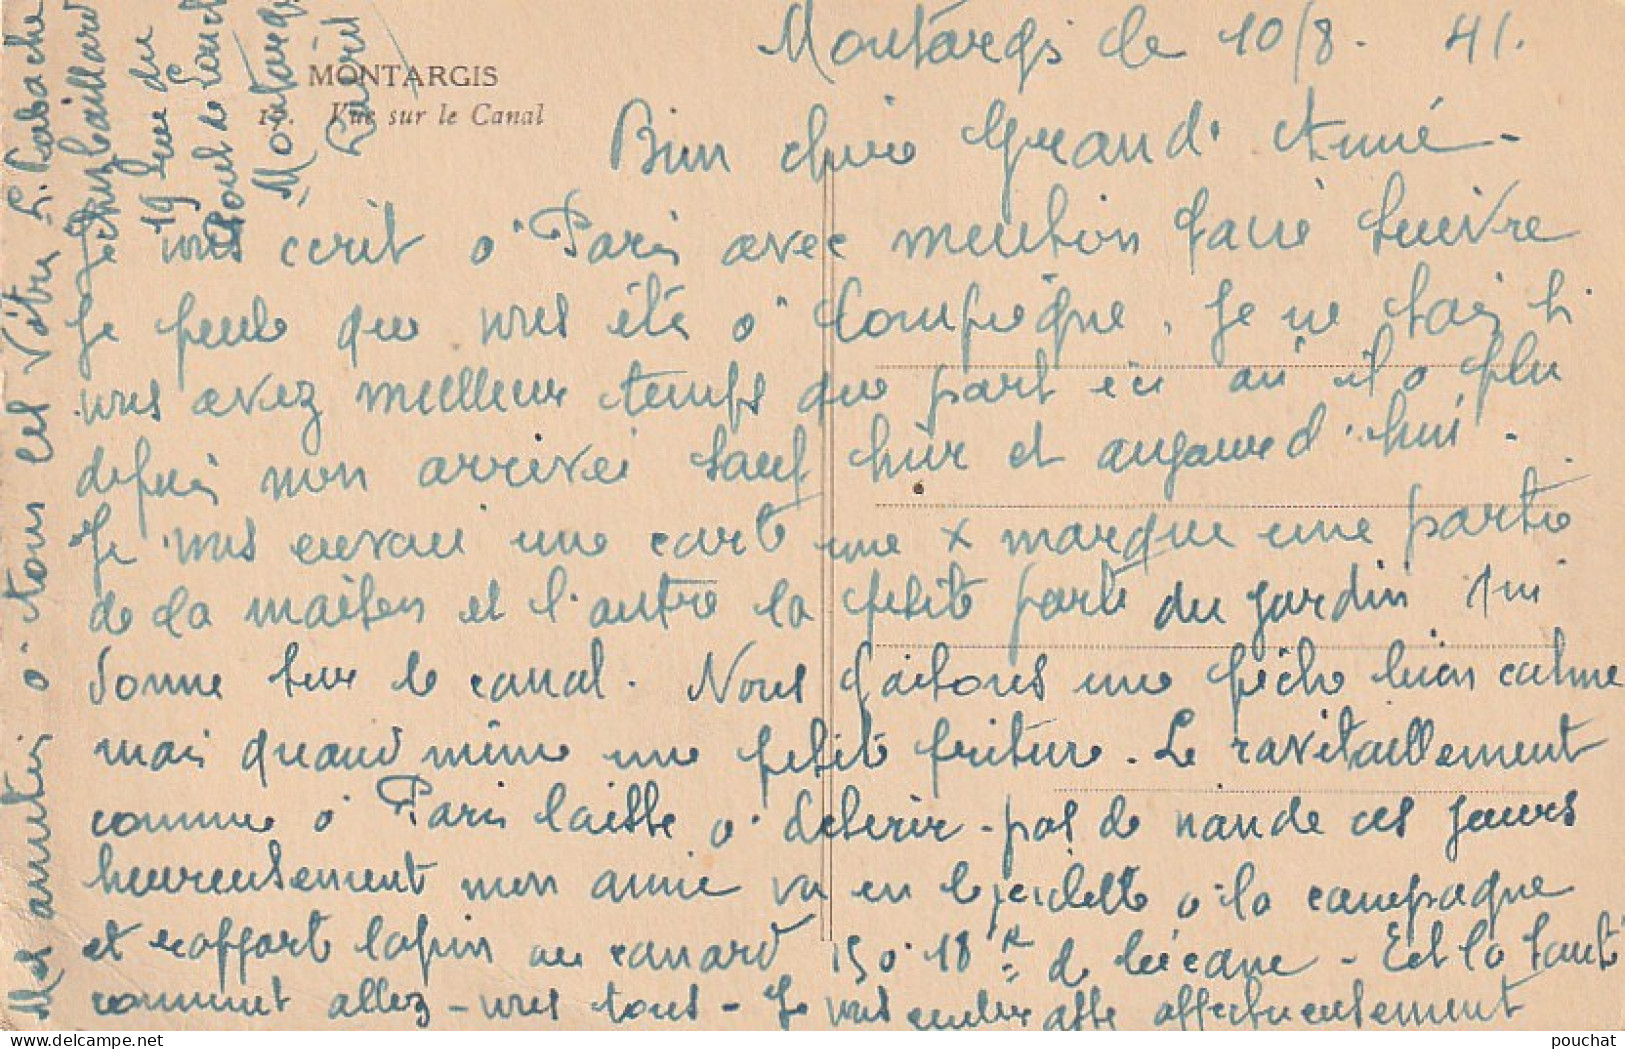 Montargis le 10/8. 41.
MONTARGIS
Vue sur le Canal
Bien chère Grand'Amie -
Je vous écrit à Paris avec mention faire suivre
Je pense que vous été à Compiègne. Je ne sais si
vous avez meilleur temps que part ici où il a plu
depuis mon arrivée sauf hier et aujourd'hui.
Je vous envoie une carte une x marque une partie
de la maison et l'autre la petite porte du jardin qui
donne sur le canal. Nous faisons une pêche bien calme
mais quand même une petite friture. Le ravitaillement
comme à Paris laisse à désirer - pas de viande ces jours
heureusement mon amie va en bicyclette à la campagne
et rapporte lapin ou canard 15 à 18 K de bécane - Et la santé
comment allez-vous tous - Je vous embrasse affectueusement
Mes amitiés à tous et Vôtre L. Labache
chez Gaillard
19 rue du
Pont de Loing
Montargis
Loiret
pouchat
www.delcampe.net